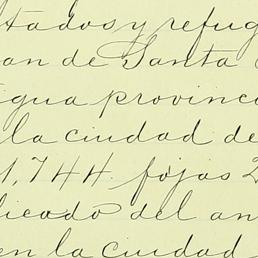 tados y refug
an de Santa
igua provinc
la ciudad de
1,744. fojas 2
licado del an
en la ciudad